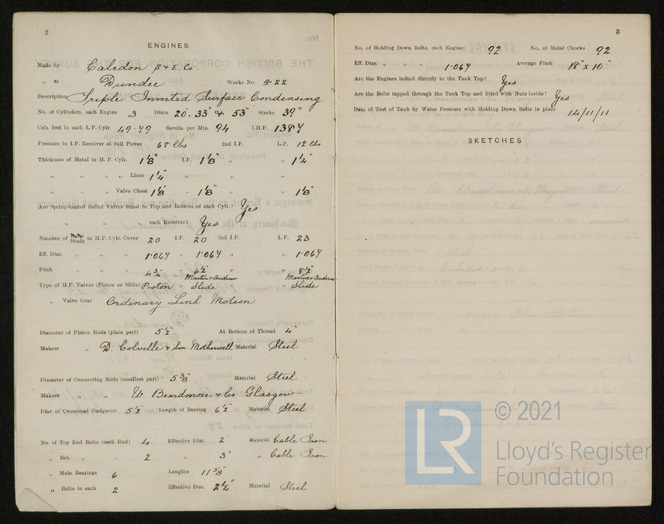 2
ENGINES.
Made by Caledon S & E. Co
„ at Dundee Works No 222
Description Triple Inverted Surface Condensing
No. of Cylinders, each Engine 3 Diars. 20. 33" & 53" Stroke 39"
Cub. feet in each L.P. Cylr. 49.79 Revols. per Min. 94 I.H.P. 1387
Pressure in I.P. Receiver at full Power 68 lbs 2nd I.P. L.P. 12 lbs
Thickness of Metal in H.P. Cylr. 1⅛" I.P. 1⅛" „ „ 1¼"
„ „ „ Liner 1¼" „ „ „
„ „ Valve Chest 1⅛" „ 1⅛" „ „ 1⅛"
Are Spring-loaded Relief Valves fitted to Top and Bottom of each Cylr. Yes
„ „ „ each Receiver? Yes
Number of Studs in H.P. Cylr. Cover 20 I.P. 20 2nd I.P. L.P. 23
Eff. Diar. „ „ 1.067 „ 1.067 „ „ 1.067
Pitch „ „ 4¾ „ 6½ „ „ 8½"
Type of H.P. Valves (Piston or Slide) Piston „ Martin & Andrew Slide „ „ Martin & Andrew Slide
„ Valve Gear Ordinary Link Motion
Diameter of Piston Rods (plain part) 5½" At Bottom of Thread 4"
Makers „ D. Colville & Son Motherwell Material Steel
Diameter of Connecting Rods (smallest part) 5⅜ Material Steel
Makers „ W. Beardmore & Co. Glasgow
Diar. of Crosshead Gudgeons 5½" Length of Bearing 6½" Material Steel
No. of Top End Bolts (each Rod) 4 Effective Diar. 2" Material Cable Iron
„ Bot. „ „ 2 „ 3" „ Cable Iron
„ Main Bearings 6 Lengths 11⅜"
„ Bolts in each 2 Effective Diar. 2¼" Material Steel
3
No. of Holding Down Bolts, each Engine 92 No. of Metal Chocks 92
Eff. Diar. „ „ 1.067 Average Pitch 18" x 10"
Are the Engines bolted directly to the Tank Top? Yes
Are the Bolts tapped through the Tank Top and fitted with Nuts inside? Yes
Date of Test of Tank by Water Pressure with Holding Down Bolts in place 14/11/11
SKETCHES
© 2021
LR
Lloyd's Register
Foundation